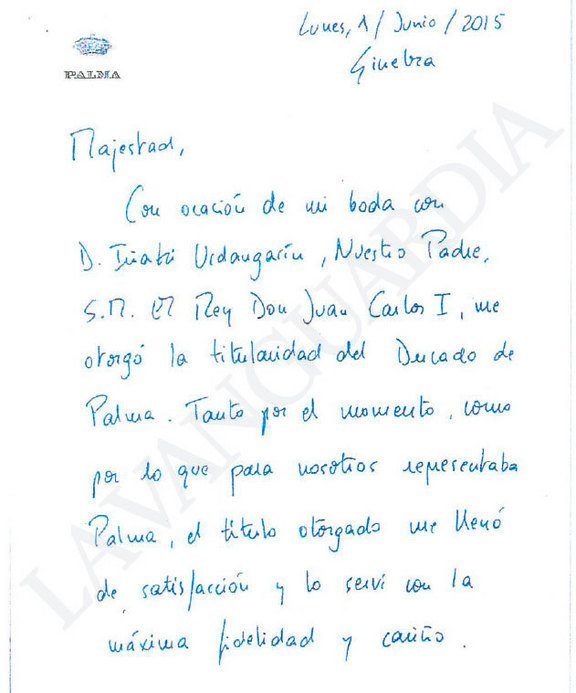 Lunes, 1/Junio/2015
Ginebra
PALMA
Majestad,
Con ocación de mi boda con
D. Iñaki Urdangarín, Nuestro Padre,
S.M. El Rey Don Juan Carlos I, me
otorgó la titularidad del Ducado de
Palma. Tanto por el momento, como
por lo que para nosotros representaba
Palma, el título otorgado me llenó
de satisfacción y lo serví con la
máxima fidelidad y cariño.
LAVANGUARDIA